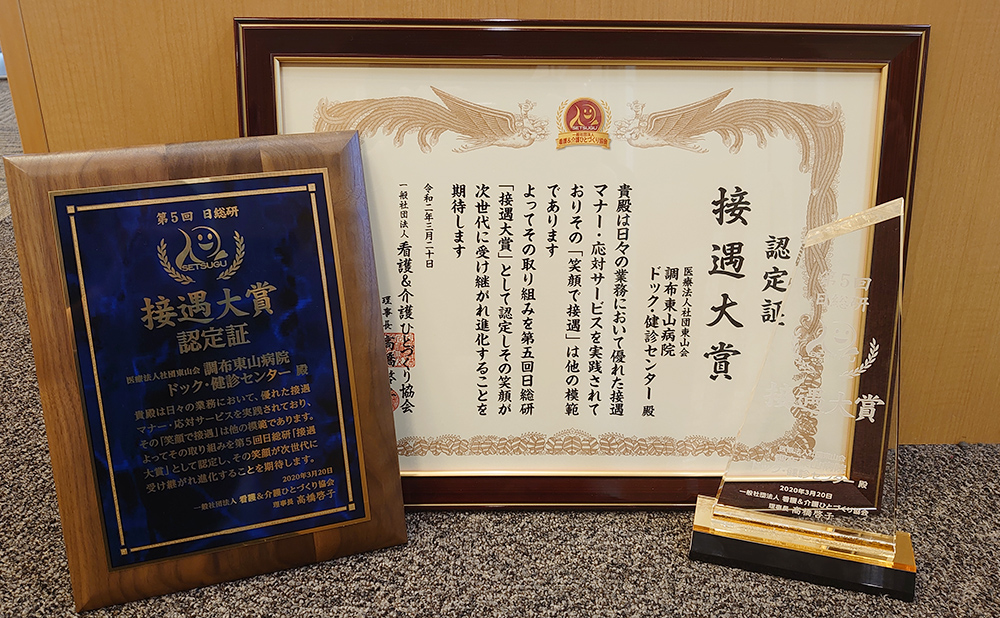 第5回 日総研
SETSUGU
接遇大賞
認定証
医療法人社団東山会 調布東山病院
ドック・健診センター 殿
貴殿は日々の業務において、優れた接遇
マナー・応対サービスを実践されており、
その「笑顔で接遇」は他の模範であります。
よってその取り組みを第5回日総研「接遇
大賞」として認定し、その笑顔が次世代に
受け継がれ進化することを期待します。
2020年3月20日
一般社団法人 看護&介護ひとづくり協会
理事長 高橋啓子
SETSUGU
一般社団法人
看護&介護ひとづくり協会
認定証
接遇大賞
医療法人社団東山会
調布東山病院
ドック・健診センター 殿
貴殿は日々の業務において優れた接遇
マナー・応対サービスを実践されて
おりその「笑顔で接遇」は他の模範
であります
よってその取り組みを第五回日総研
「接遇大賞」として認定しその笑顔が
次世代に受け継がれ進化することを
期待します
令和二年三月二十日
一般社団法人 看護&介護ひとづくり協会
理事長
大賞
殿
2020年3月20日
一般社団法人 看護&介護ひとづくり協会
理事長 高橋啓子